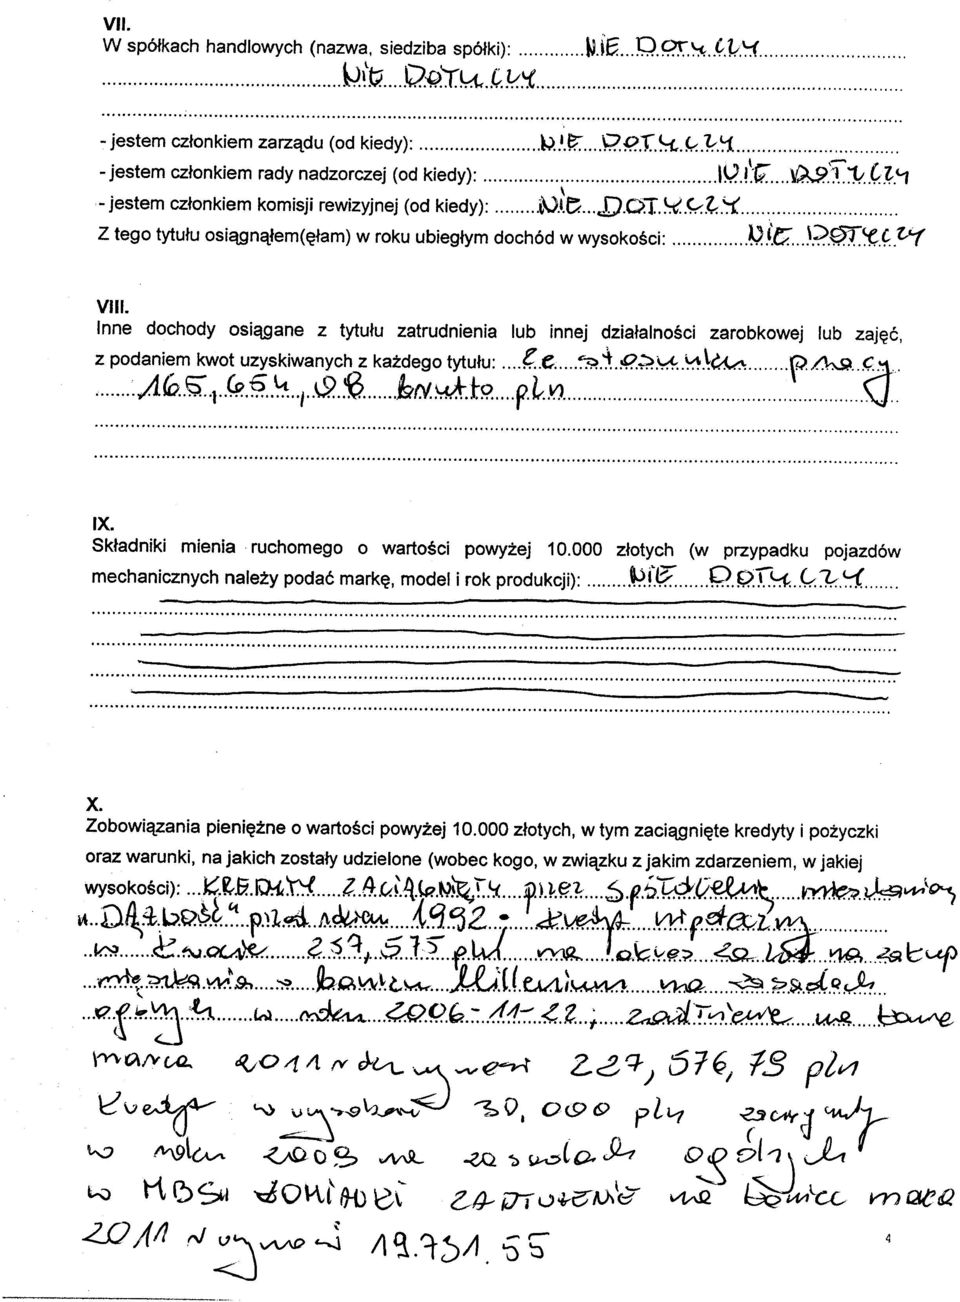 VII.
W spółkach handlowych (nazwa, siedziba spółki): ............NIE DOTYCZY
NIE DOTYCZY
- jestem członkiem zarządu (od kiedy): NIE DOTYCZY
- jestem członkiem rady nadzorczej (od kiedy): NIE DOTYCZY
- jestem członkiem komisji rewizyjnej (od kiedy): NIE DOTYCZY
Z tego tytułu osiągnąłem(ęłam) w roku ubiegłym dochód w wysokości: NIE DOTYCZY
VIII.
Inne dochody osiągane z tytułu zatrudnienia lub innej działalności zarobkowej lub zajęć,
z podaniem kwot uzyskiwanych z każdego tytułu: Ze stosunku pracy
165,654,08 brutto pln
IX.
Składniki mienia ruchomego o wartości powyżej 10.000 złotych (w przypadku pojazdów
mechanicznych należy podać markę, model i rok produkcji): NIE DOTYCZY
X.
Zobowiązania pieniężne o wartości powyżej 10.000 złotych, w tym zaciągnięte kredyty i pożyczki
oraz warunki, na jakich zostały udzielone (wobec kogo, w związku z jakim zdarzeniem, w jakiej
wysokości): KREDYTY ZACIĄGNIĘTY przez Spółdzielnię mieszkaniową
"DĄŻNOŚĆ" przed rokiem 1992. kredyt hipoteczny
w kwocie 257,575 pln na okres 20 lat na zakup
mieszkania w banku Millenium na zasadach
ogólnych w roku 2006-11-22; zadłużenie na koniec
marca 2011 r wynosi 227,576,79 pln
Kredyt w wysokości 30,000 pln zaciągnięty
w roku 2009 na zasadach ogólnych
w MBSu ŁOMIANKI ZADŁUŻENIE na koniec marca
2011 r wynosi 19.731.55
4